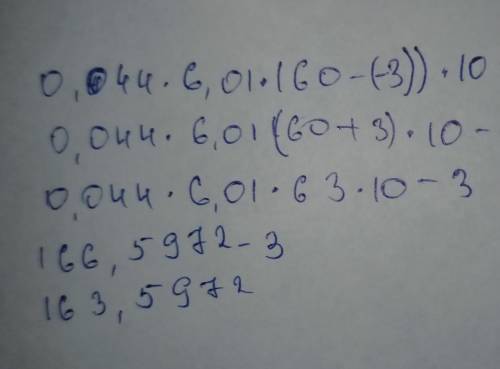 0,044·6,01·(60-(-3))·10
0,044·6,01(60+3)·10-
0,044·6,01·63·10-3
166,5972-3
163,5972